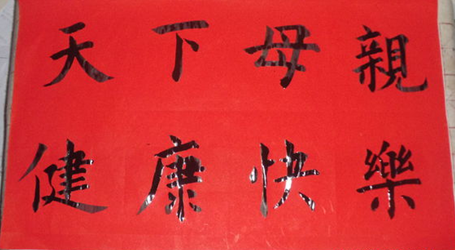 天下母親
健康快樂